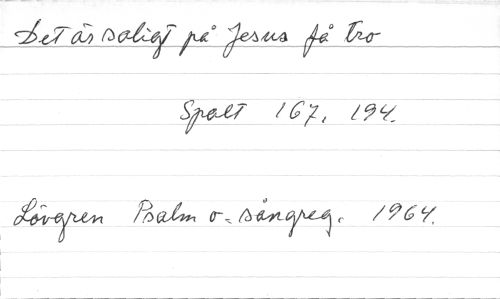 Det är saligt på Jesus få tro
Spalt 167, 194.
Lövgren Psalm o. sångreg. 1964.